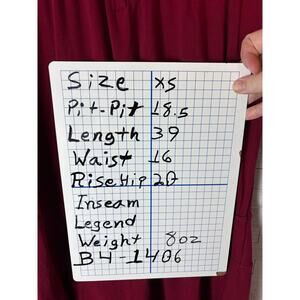 Size XS
Pit-Pit 18.5
Length 39
Waist 16
Rise Hip 20
Inseam
Legend
Weight 8oz
B4-1406